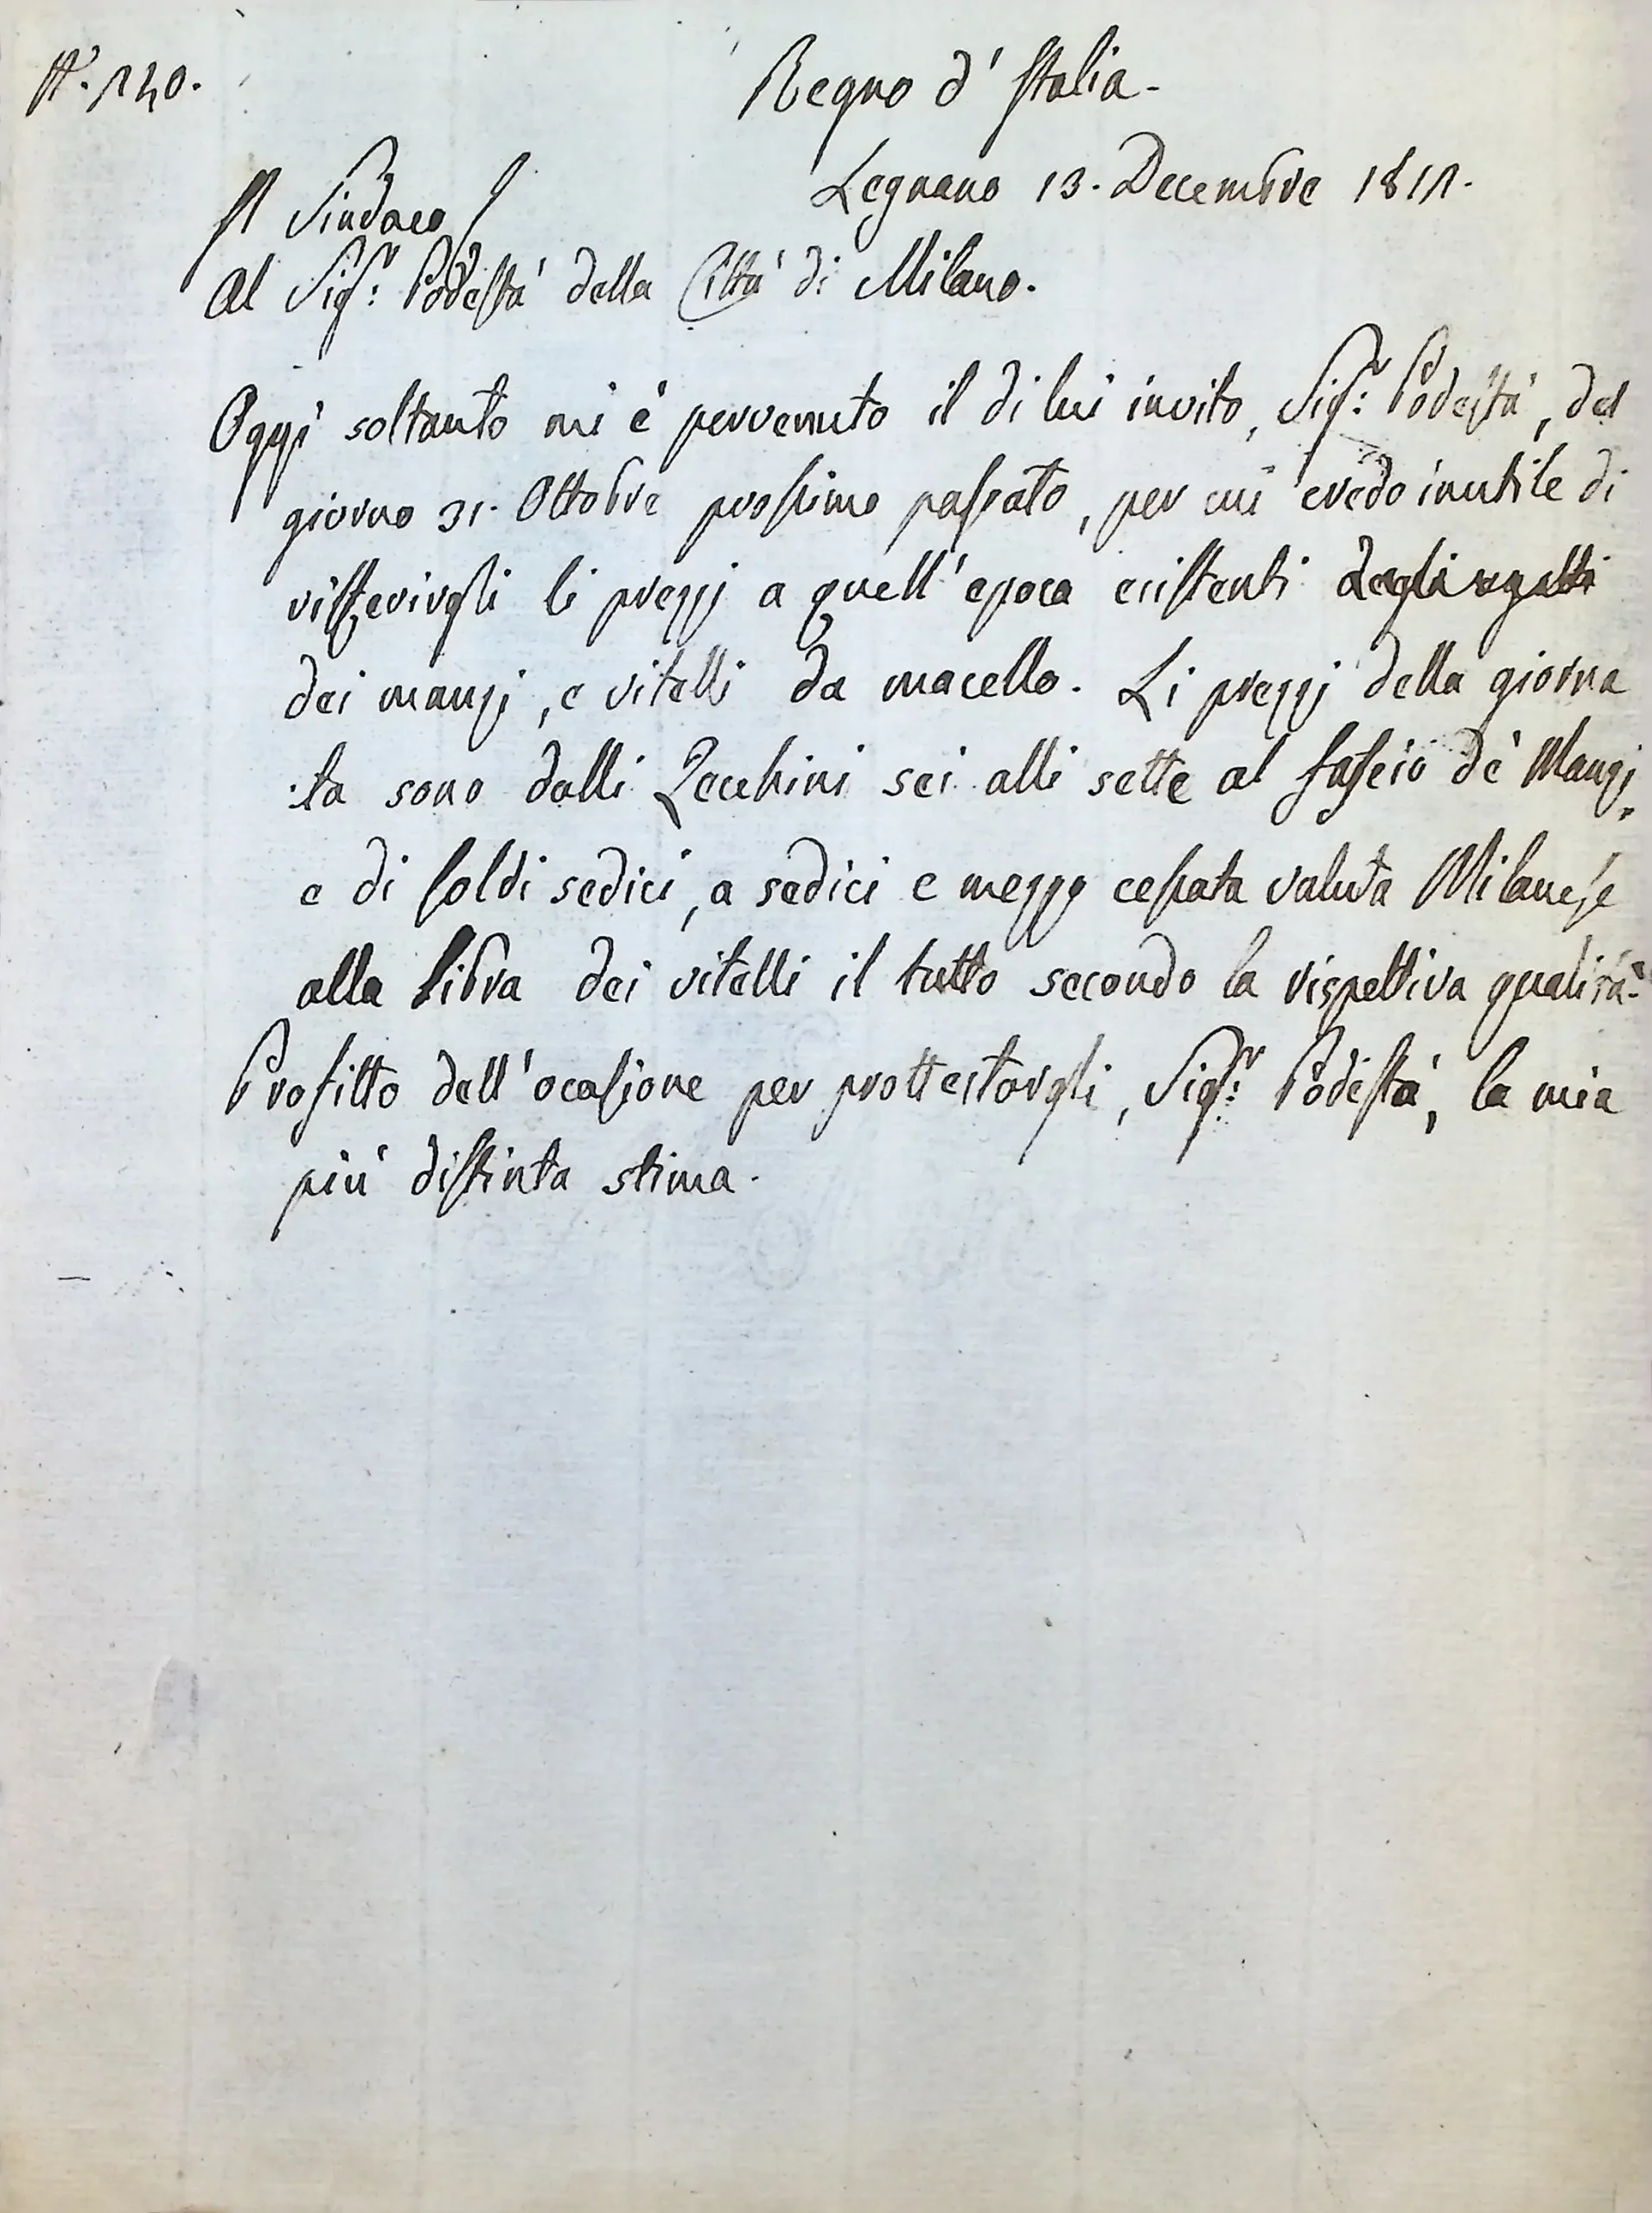 N.° 140.
Regno d'Italia.
Legnano 13. Decembre 1811.
Il Sindaco
Al Sig.r Podestà della Città di Milano.
Oggi soltanto mi è pervenuto il di lui invito, Sig.r Podestà, del
giorno 31. Ottobre prossimo passato, per cui credo inutile di
riferirgli li prezzj a quell'epoca esistenti
dei manzj, e vitelli da macello. Li prezzj della giorna
ta sono dalli Zecchini sei alli sette al fascio dè Manzj,
e di soldi sedici, a sedici e mezzo cessata valuta Milanese
alla libra dei vitelli il tutto secondo la rispettiva qualità.
Profitto dell'ocasione per prottestargli, Sig.r Podestà, la mia
più distinta stima.